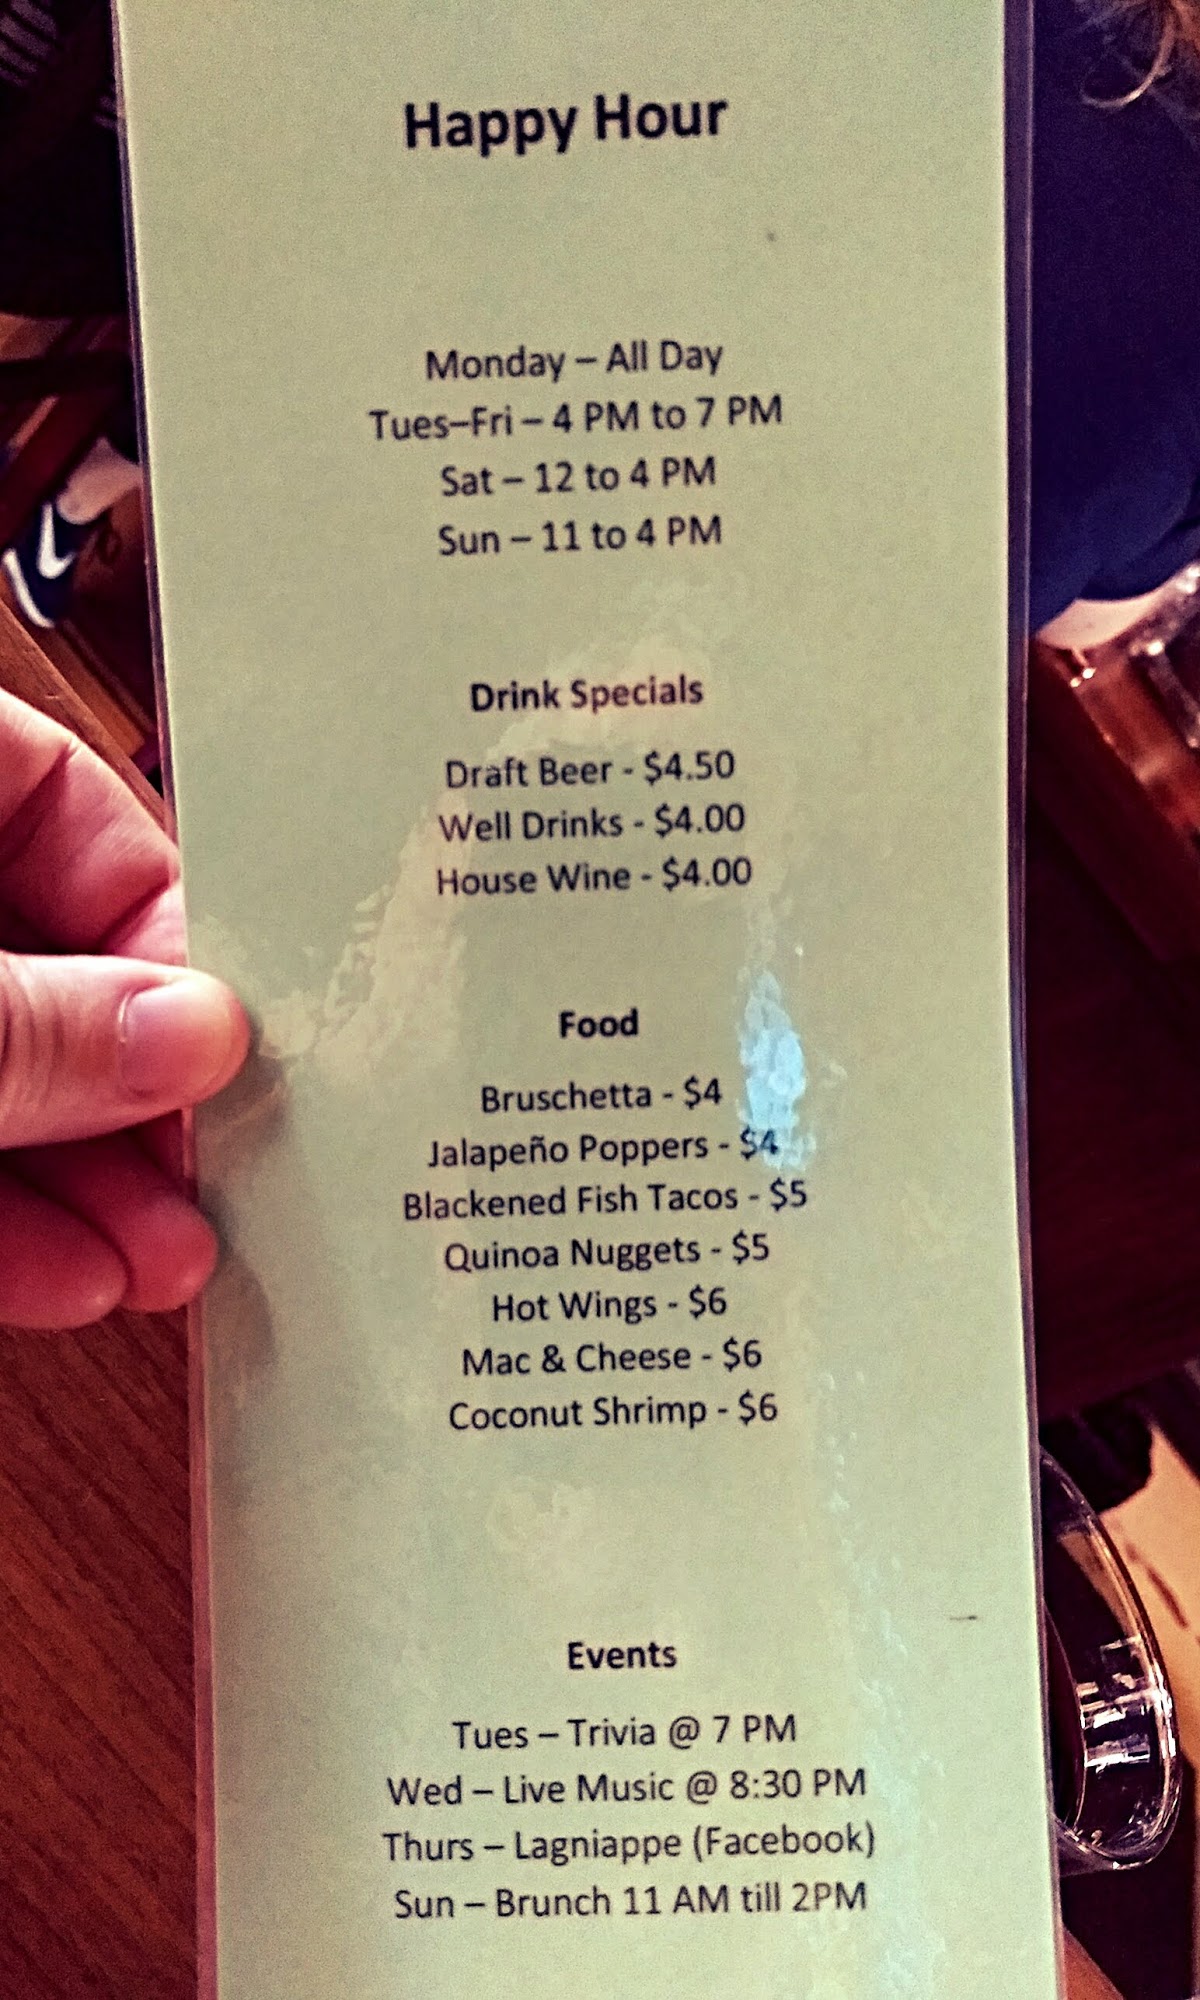 Happy Hour
Monday – All Day
Tues–Fri – 4 PM to 7 PM
Sat – 12 to 4 PM
Sun – 11 to 4 PM
Drink Specials
Draft Beer - $4.50
Well Drinks - $4.00
House Wine - $4.00
Food
Bruschetta - $4
Jalapeño Poppers - $4
Blackened Fish Tacos - $5
Quinoa Nuggets - $5
Hot Wings - $6
Mac & Cheese - $6
Coconut Shrimp - $6
Events
Tues – Trivia @ 7 PM
Wed – Live Music @ 8:30 PM
Thurs – Lagniappe (Facebook)
Sun – Brunch 11 AM till 2PM